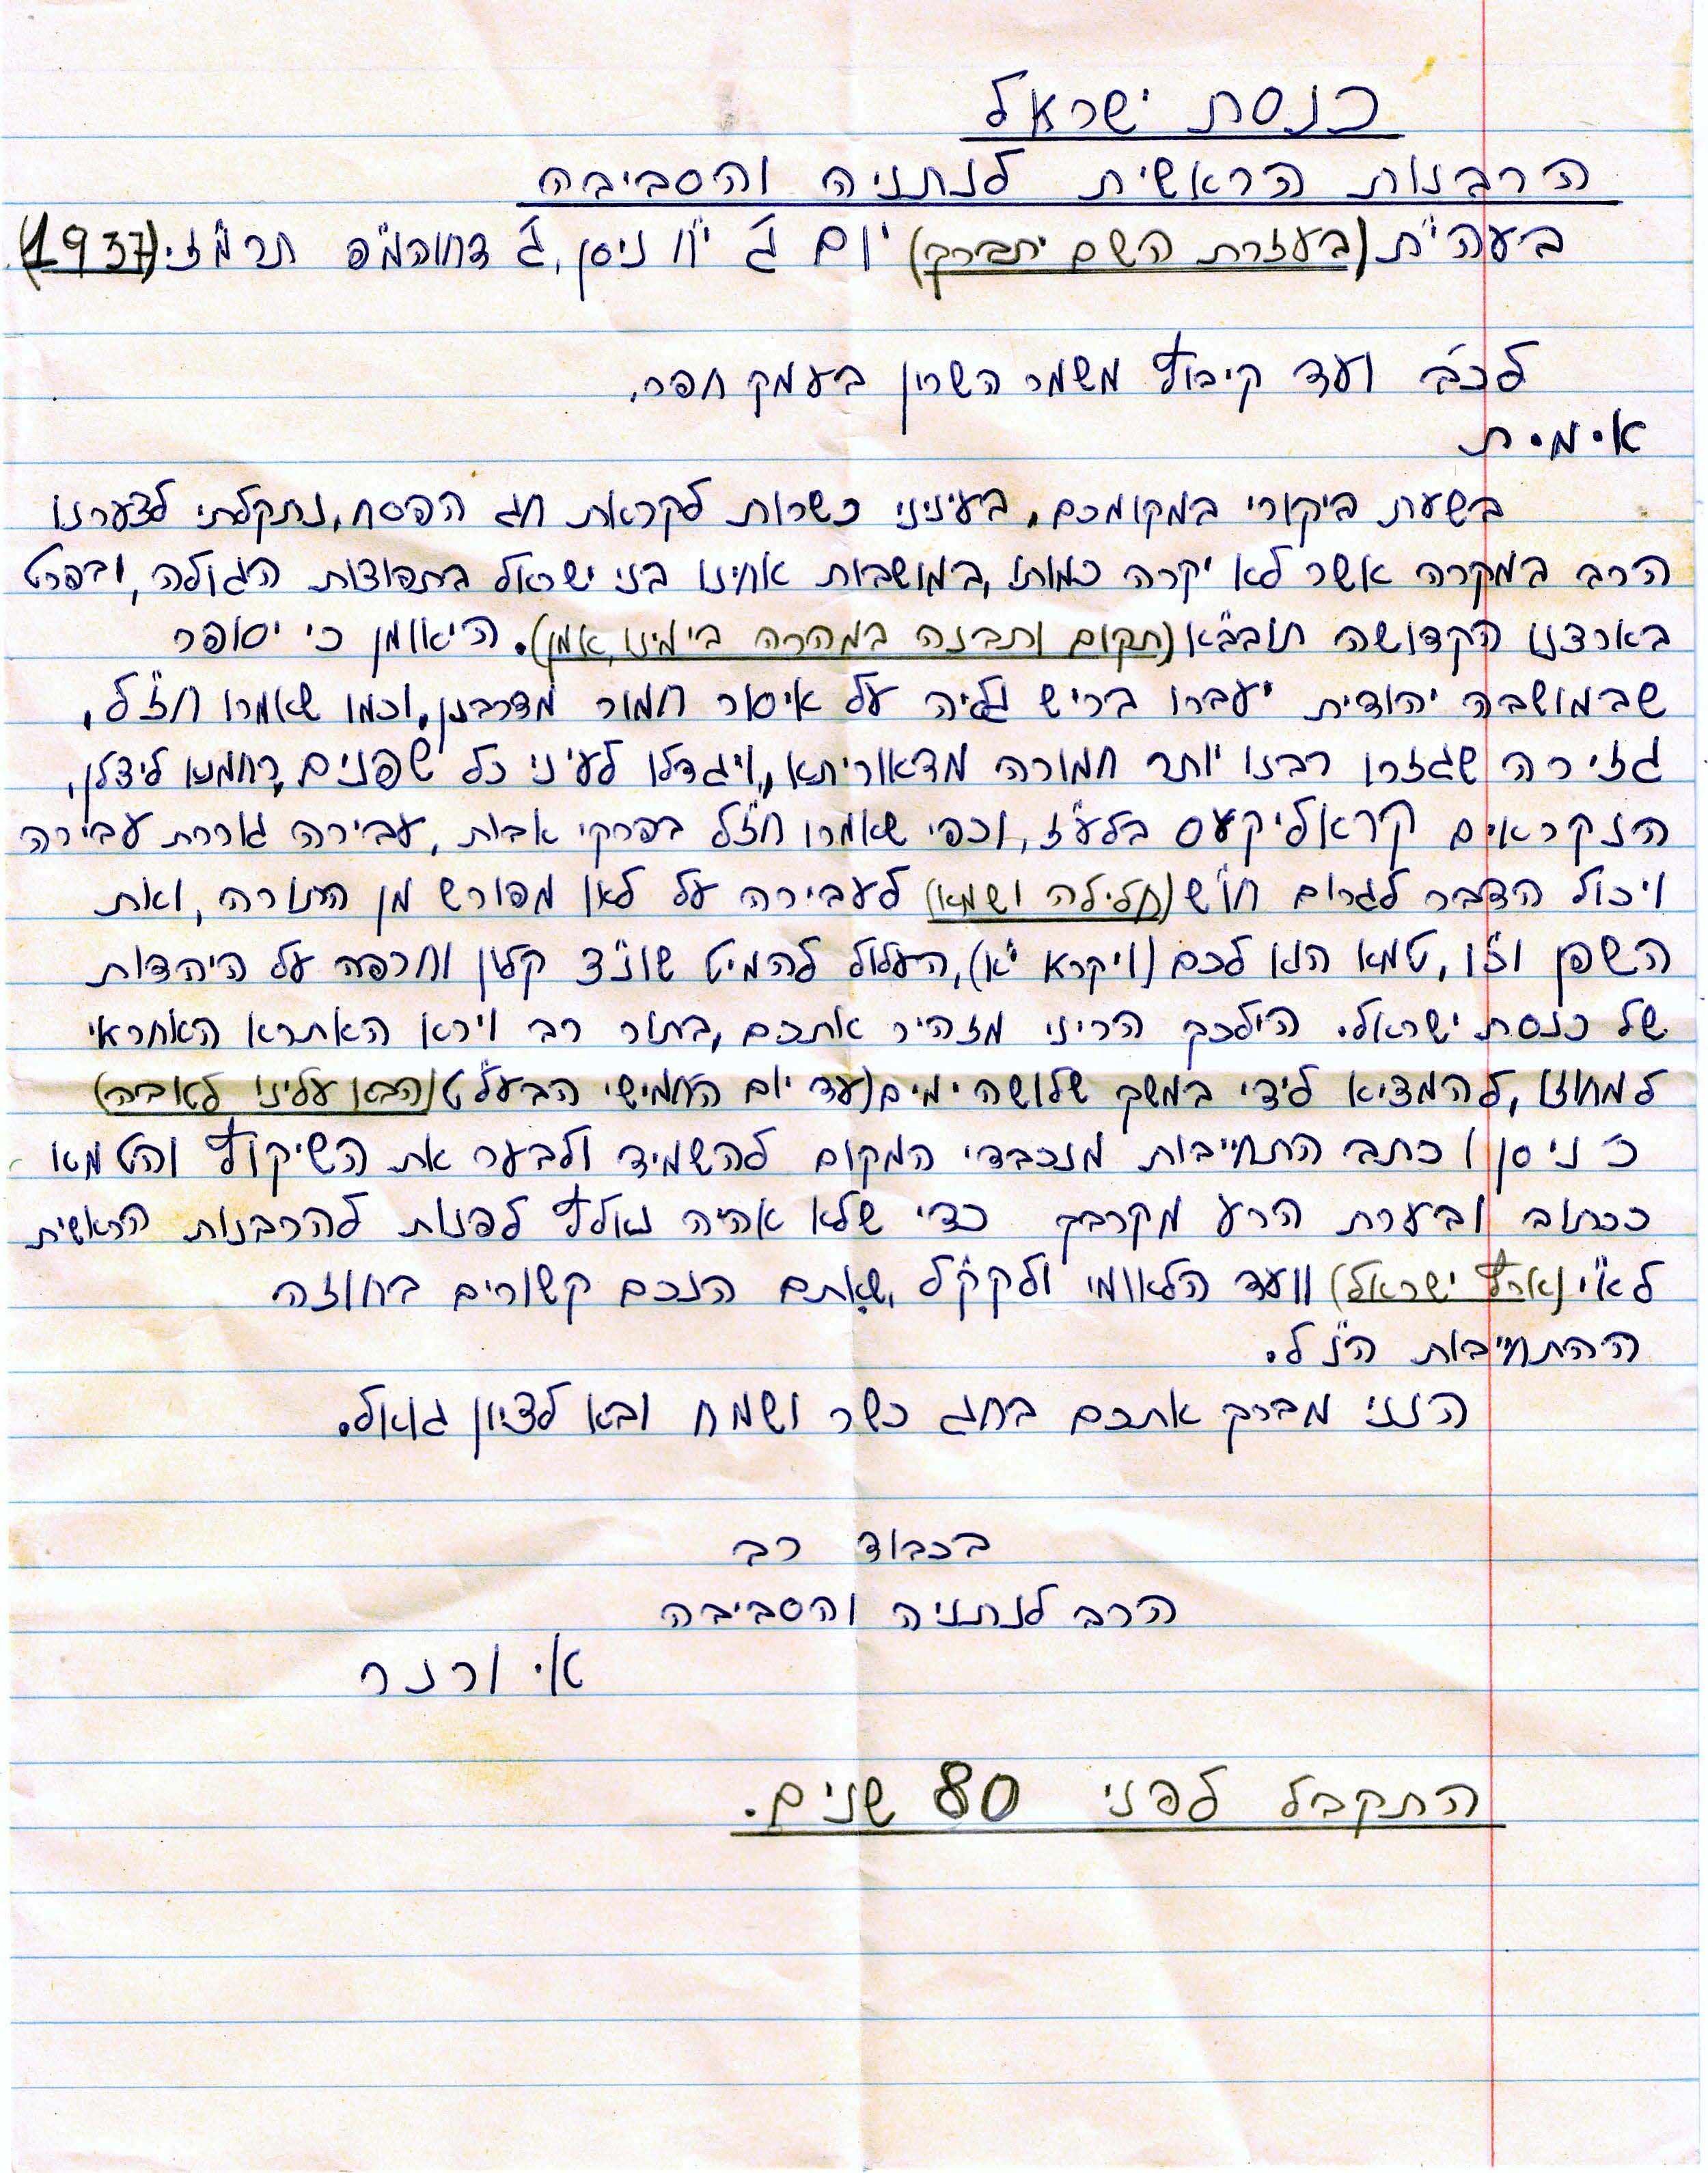 כנסת ישראל
הרבנות הראשית לנתניה והסביבה
בעהי"ת (בעזרת השם יתברך) יום ג' י"ח ניסן, ג' דחוהמ"פ תרצ"ז. (1937)
לכב' ועד קיבוץ משמר השרון בעמק חפר.
א.מ.ת
בשעת ביקורי במקומכם, בעיניני כשרות לקראת חג הפסח, נתקלתי לצערנו
הרב במקרה אשר לא יקרה כמותו, במושבות אחינו בני ישראל בתפוצות הגולה, ובפרט
בארצנו הקדושה תובב"א (תקום ותבנה במהרה בימינו, אמן). היאומן כי יסופר
שבמושבה יהודית יעברו בריש גליה על איסור חמור מדרבנן, וכמו שאמרו חז"ל,
גזירה שגזרו רבנו יותר חמורה מדאוריתא, ויגדלו לעיני כל שפנים, רחמנא ליצלן,
הנקראים קראליקעס בלע"ז, וכפי שאמרו חז"ל בפרקי אבות, עבירה גוררת עבירה
ויכול הדבר לגרום חו"ש (חלילה ושמא) לעבירה על לאו מפורש מן התורה, ואת
השפן וגו', טמא הוא לכם (ויקרא י"א), העלול להמיט שונ"צ קלון וחרפה על היהדות
של כנסת ישראל. הילכך הריני מזהיר אתכם, בתור רב וירא האתרא האחראי
למחוזו, להמציא לידי במשך שלושה ימים (עד יום החמישי הבעל"ט (הבא עלינו לטובה)
כ' ניסן) כתב התחייבות מנכבדי המקום להשמיד ולבער את השיקוץ והטמא
ככתוב ובערת הרע מקרבך כדי שלא אהיה נאלץ לפנות להרבנות הראשית
לא"י (ארץ ישראל) וועד הלאומי ולקק"ל, שאתם הנכם קשורים בחוזה
ההתחייבות הנ"ל.
הנני מברך אתכם בחג כשר ושמח ובא לציון גואל.
בכבוד רב
הרב לנתניה והסביבה
ורנר
התקבל לפני 80 שנים.